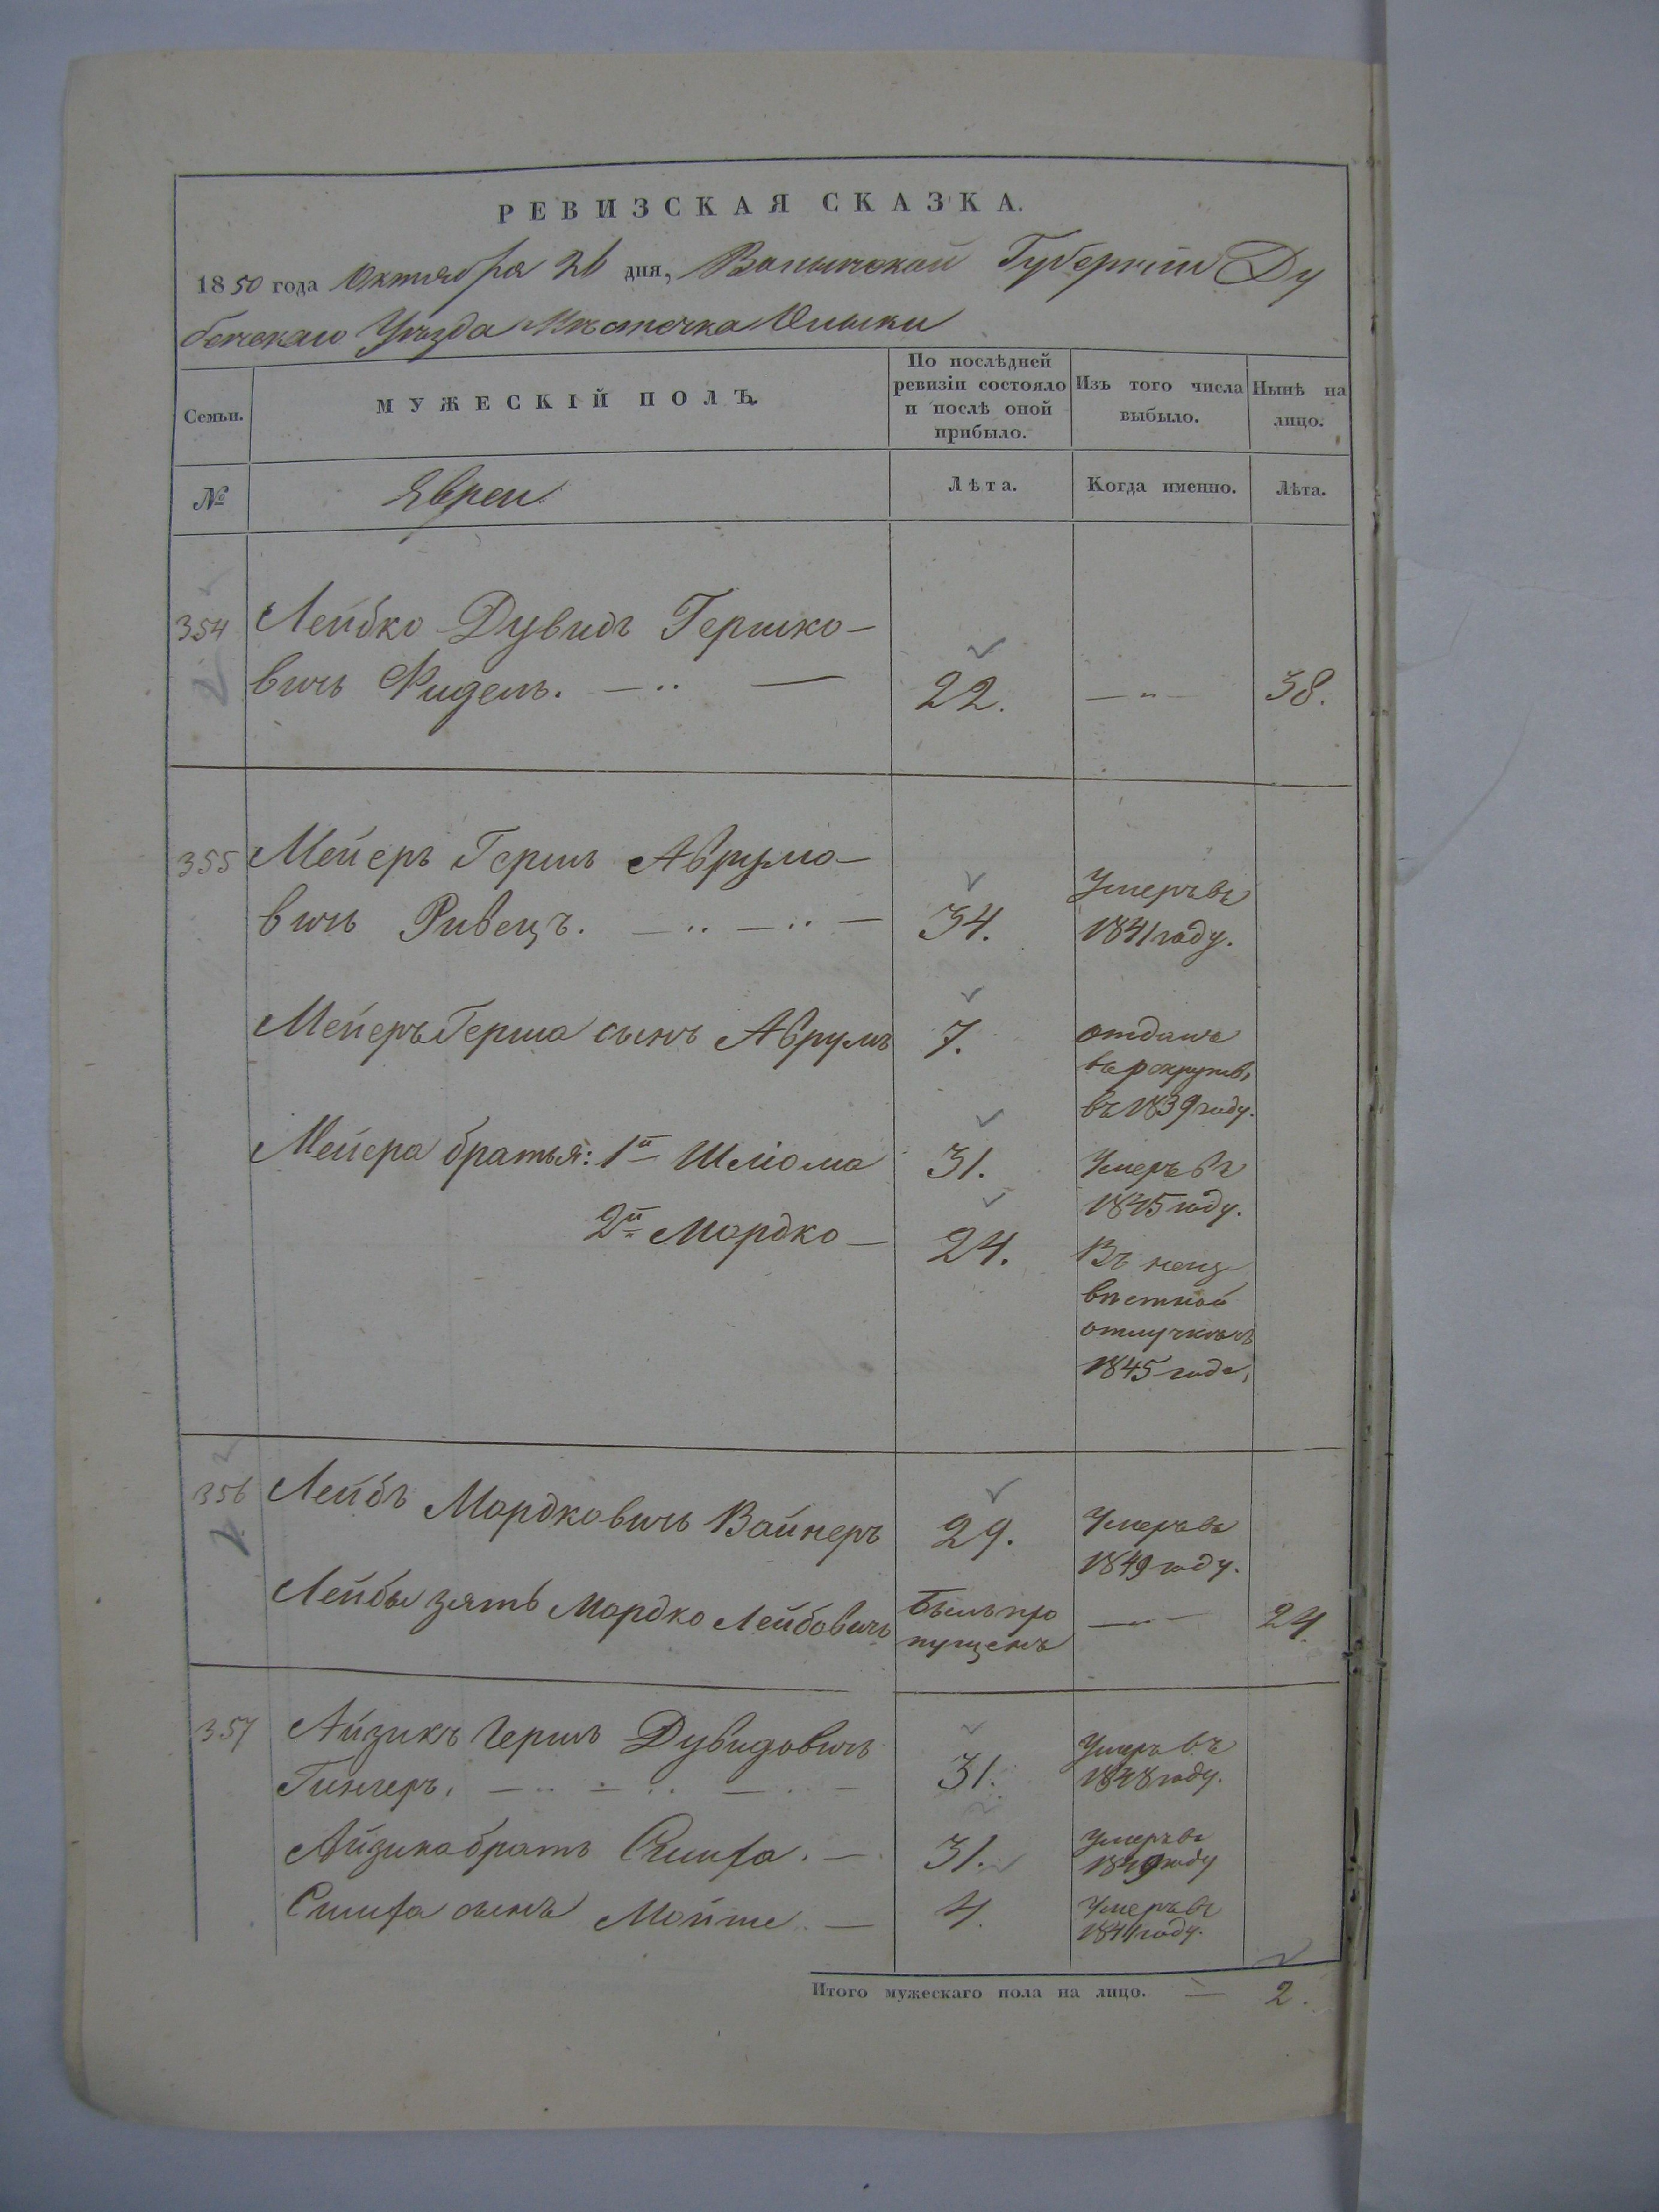 РЕВИЗСКАЯ СКАЗКА.
1850 года Октября 26 дня, Волынской Губернии Ду
бенскаго Уѣзда Мѣстечка Олыки
Семьи.
МУЖЕСКІЙ ПОЛЪ.
По послѣдней
ревизіи состояло
и послѣ оной
прибыло.
Изъ того числа
выбыло.
Нынѣ на
лицо.
№
Евреи
Лѣта.
Когда именно.
Лѣта.
354 Лейбко Дувидъ Гершко-
вичъ Фидель. 22. 38.
355 Мейеръ Гершъ Аврумо-
вичъ Ривецъ. 34. Умеръ въ
1841 году.
Мейеръ Герша сынъ Аврумъ 7. отданъ
въ рекруты
въ 1839 году.
Мейера братья: 1й Шліома 31. Умеръ въ
1845 году.
2й Мордко 24. Въ неиз
вѣстной
отлучкѣ съ
1845 года.
356 Лейбъ Мордковичъ Вайнеръ 29. Умеръ въ
1849 году.
Лейбы зять Мордко Лейбовичъ Былъ про
пущенъ 24.
357 Айзикъ Гершъ Дувидовичъ
Гингеръ. 31. Умеръ въ
1848 году.
Айзика братъ 31. Умеръ въ
1849 году
сынъ Мойше. 4. Умеръ въ
1841 году.
Итого мужескаго пола на лицо. — 2.